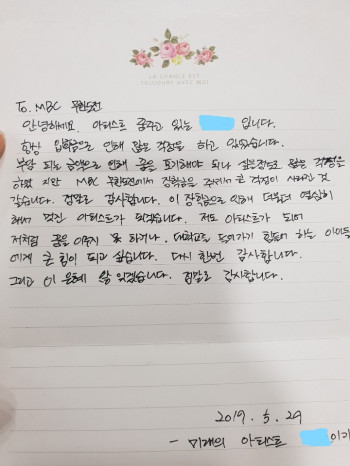 LA CHANCE EST
TOUJOURS AVEC MOI
To. MBC 무한도전
안녕하세요. 아티스트 꿈꾸고 있는 입니다.
항상 입학금으로 인해 많은 걱정을 하고 있었습니다.
부담 되는 금액으로 인해 꿈을 포기해야 되나 싶을정도로 많은 걱정을
하였지만 MBC 무한도전에서 장학금을 주셔서 큰 걱정이 사라진 것
같습니다. 정말로 감사합니다. 이 장학금으로 인해 더욱더 열심히
해서 멋진 아티스트가 되겠습니다. 저도 아티스트가 되어
저처럼 꿈을 이루지 못 하거나, 대학교를 들어가기 힘들어 하는 아이들
에게 큰 힘이 되고 싶습니다. 다시 한번 감사합니다.
그리고 이 은혜 안 잊겠습니다. 정말로 감사합니다.
2019. 5. 29
- 미래의 아티스트 이가